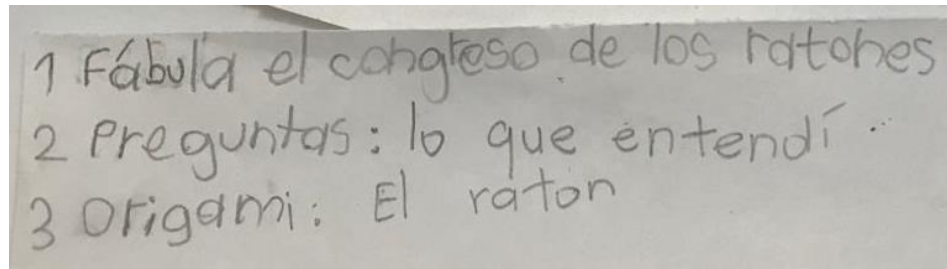 1 Fábula el congreso de los ratones
2 Preguntas: lo que entendí..
3 Origami: El raton